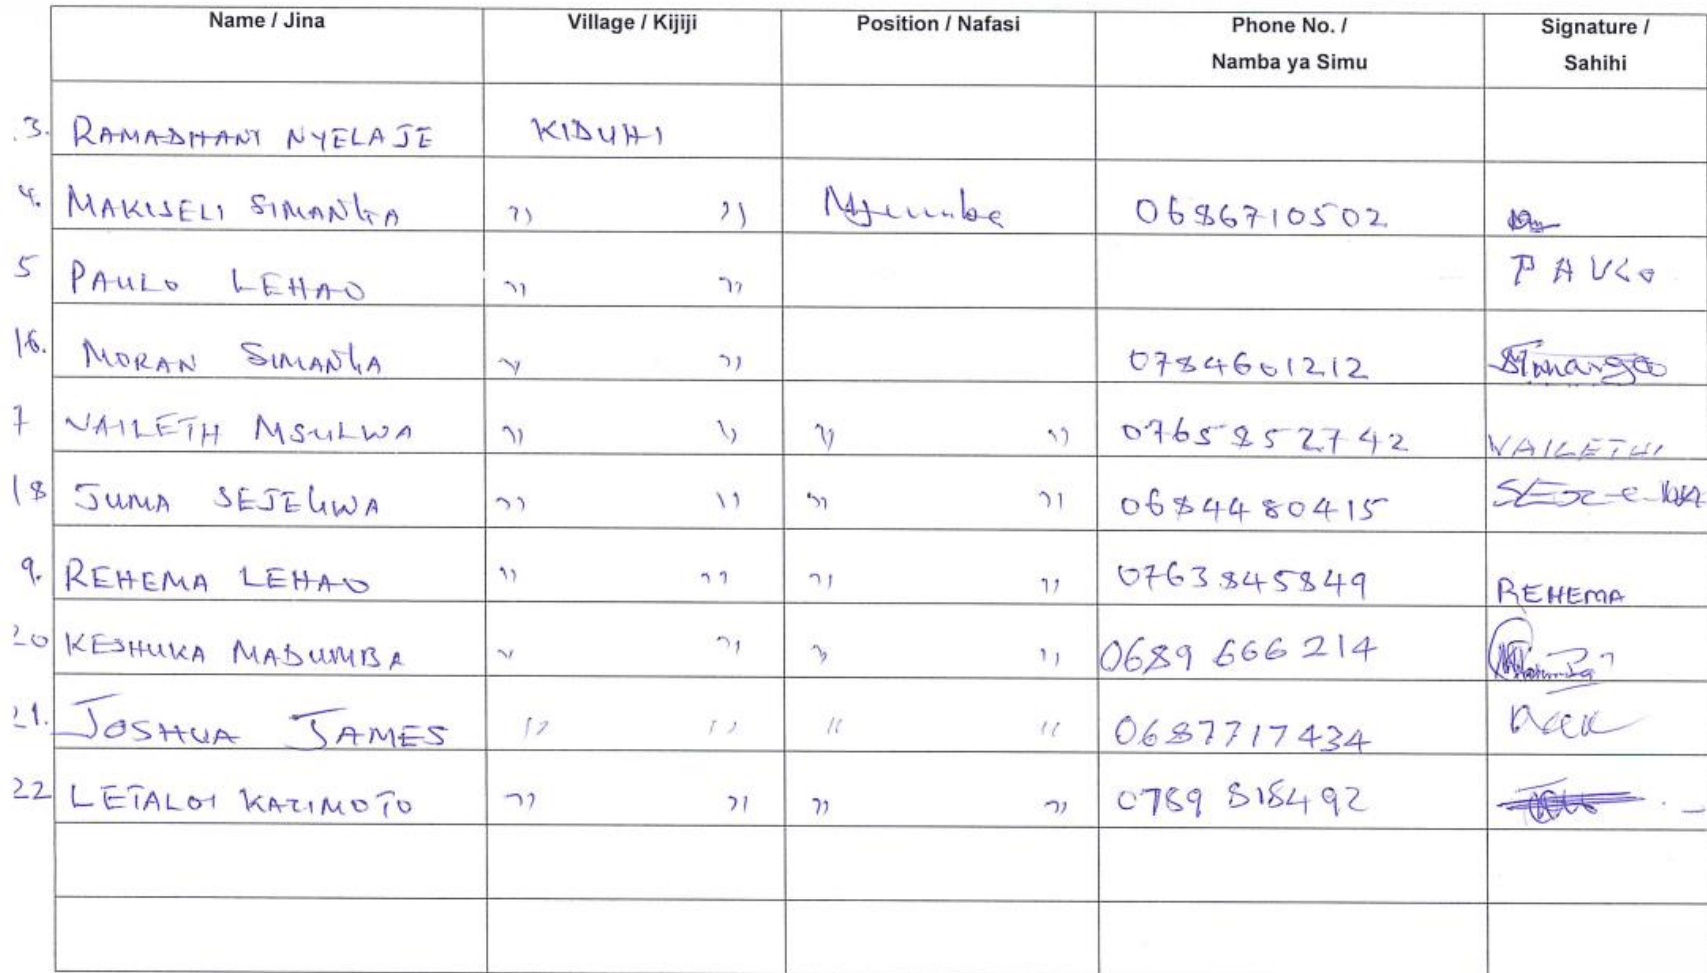 Name / Jina Village / Kijiji Position / Nafasi Phone No. / Signature /
Namba ya Simu Sahihi
3. RAMADHANI NYELAJE KIDUHI
4. MAKISELI SIMANGA " " Mjumbe 0686710502
5 PAULO LEHAO " " PAULO
16. MORAN SIMANGA " " 0784601212
7 VAILETH MSULWA " " " " 0765852742 VAILETHI
18 JUMA SEJEGWA " " " " 0684480415
9. REHEMA LEHAO " " " " 0763845849 REHEMA
20 KESHUKA MADUMBA " " " " 0689 666 214
21. JOSHUA JAMES " " " " 0687717434
22 LETALOI KAZIMOTO " " " " 0789 818492